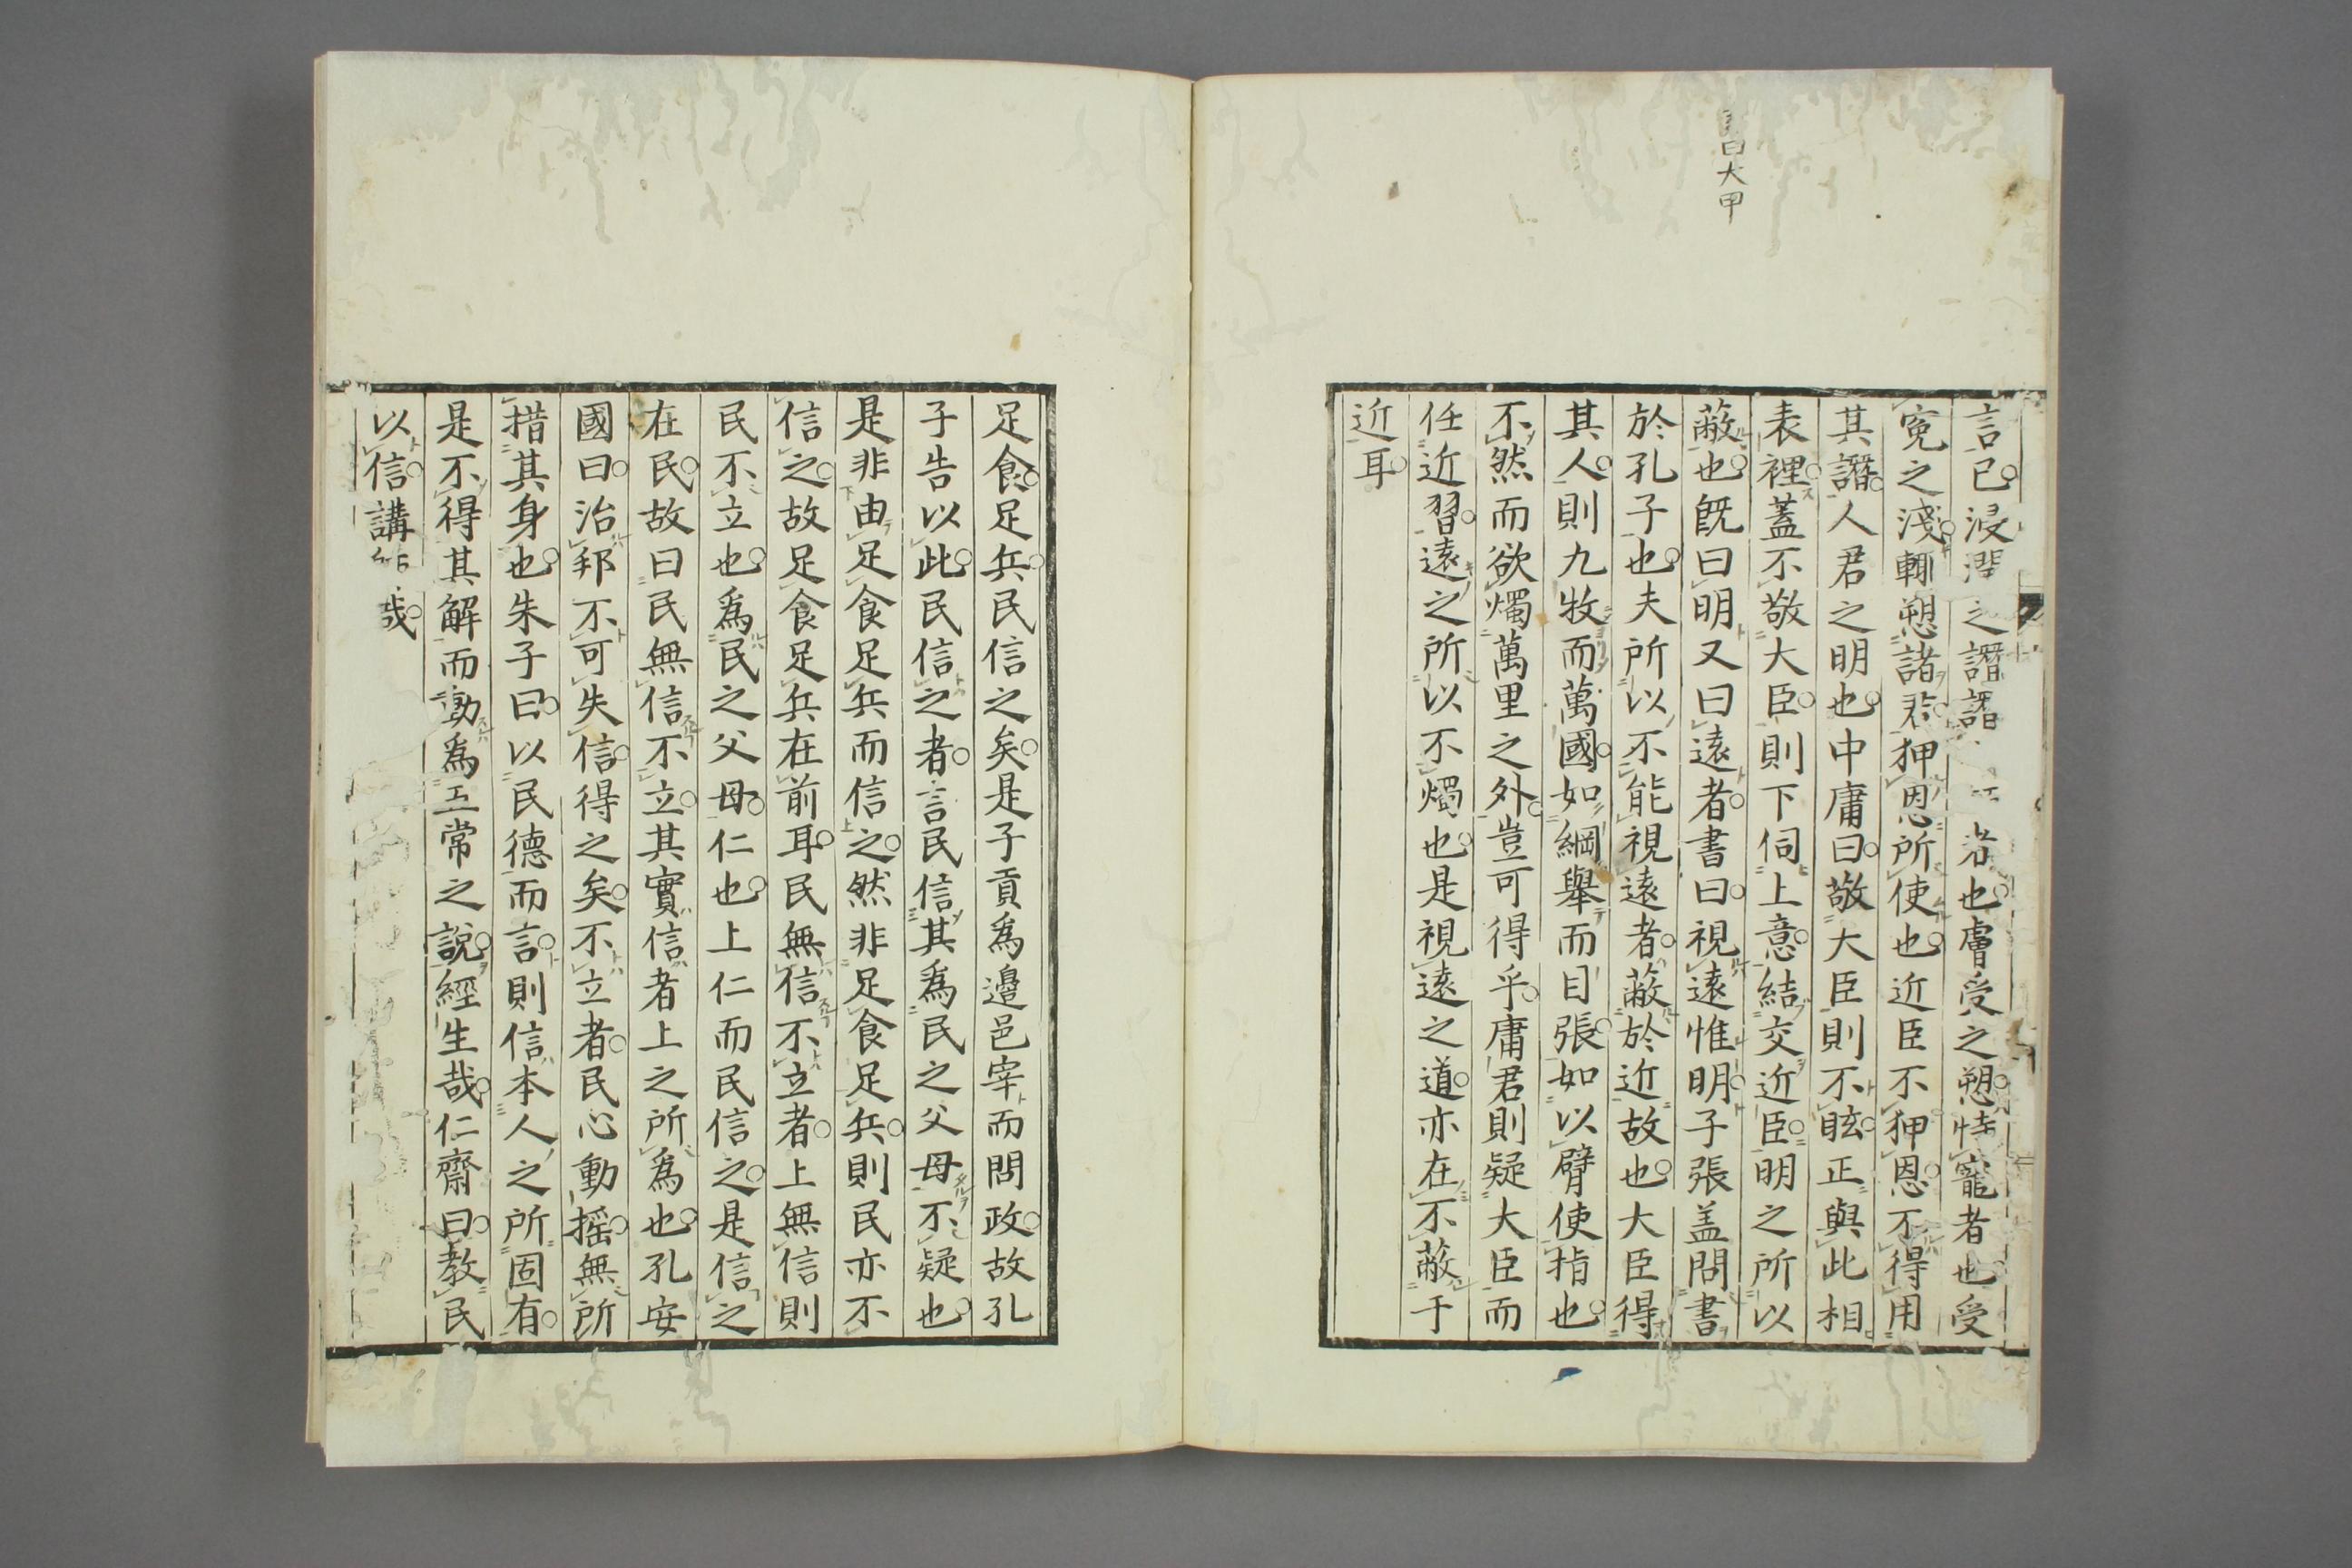 曰大甲
言已浸潤之譖譖者也膚受之愬恃寵者也受
冤之淺輙愬諸君狎恩所使也近臣不狎恩不得用
其譖人君之明也中庸曰敬大臣則不眩正與此相
表裡蓋不敬大臣則下伺上意結交近臣明之所以
蔽也既曰明又曰遠者書曰視遠惟明子張盖問書
於孔子也夫所以不能視遠者蔽於近故也大臣得
其人則九牧而萬國如綱舉而目張如以臂使指也
不然而欲燭萬里之外豈可得乎庸君則疑大臣而
任近習遠之所以不燭也是視遠之道亦在不蔽于
近耳
足食足兵民信之矣是子貢為邊邑宰而問政故孔
子告以此民信之者言民信其為民之父母不疑也
是非由足食足兵而信之然非足食足兵則民亦不
信之故足食足兵在前耳民無信不立者上無信則
民不立也為民之父母仁也上仁而民信之是信之
在民故曰民無信不立其實信者上之所為也孔安
國曰治邦不可失信得之矣不立者民心動搖無所
措其身也朱子曰以民德而言則信本人之所固有
是不得其解而動為五常之說經生哉仁齋曰教民
以信講哉